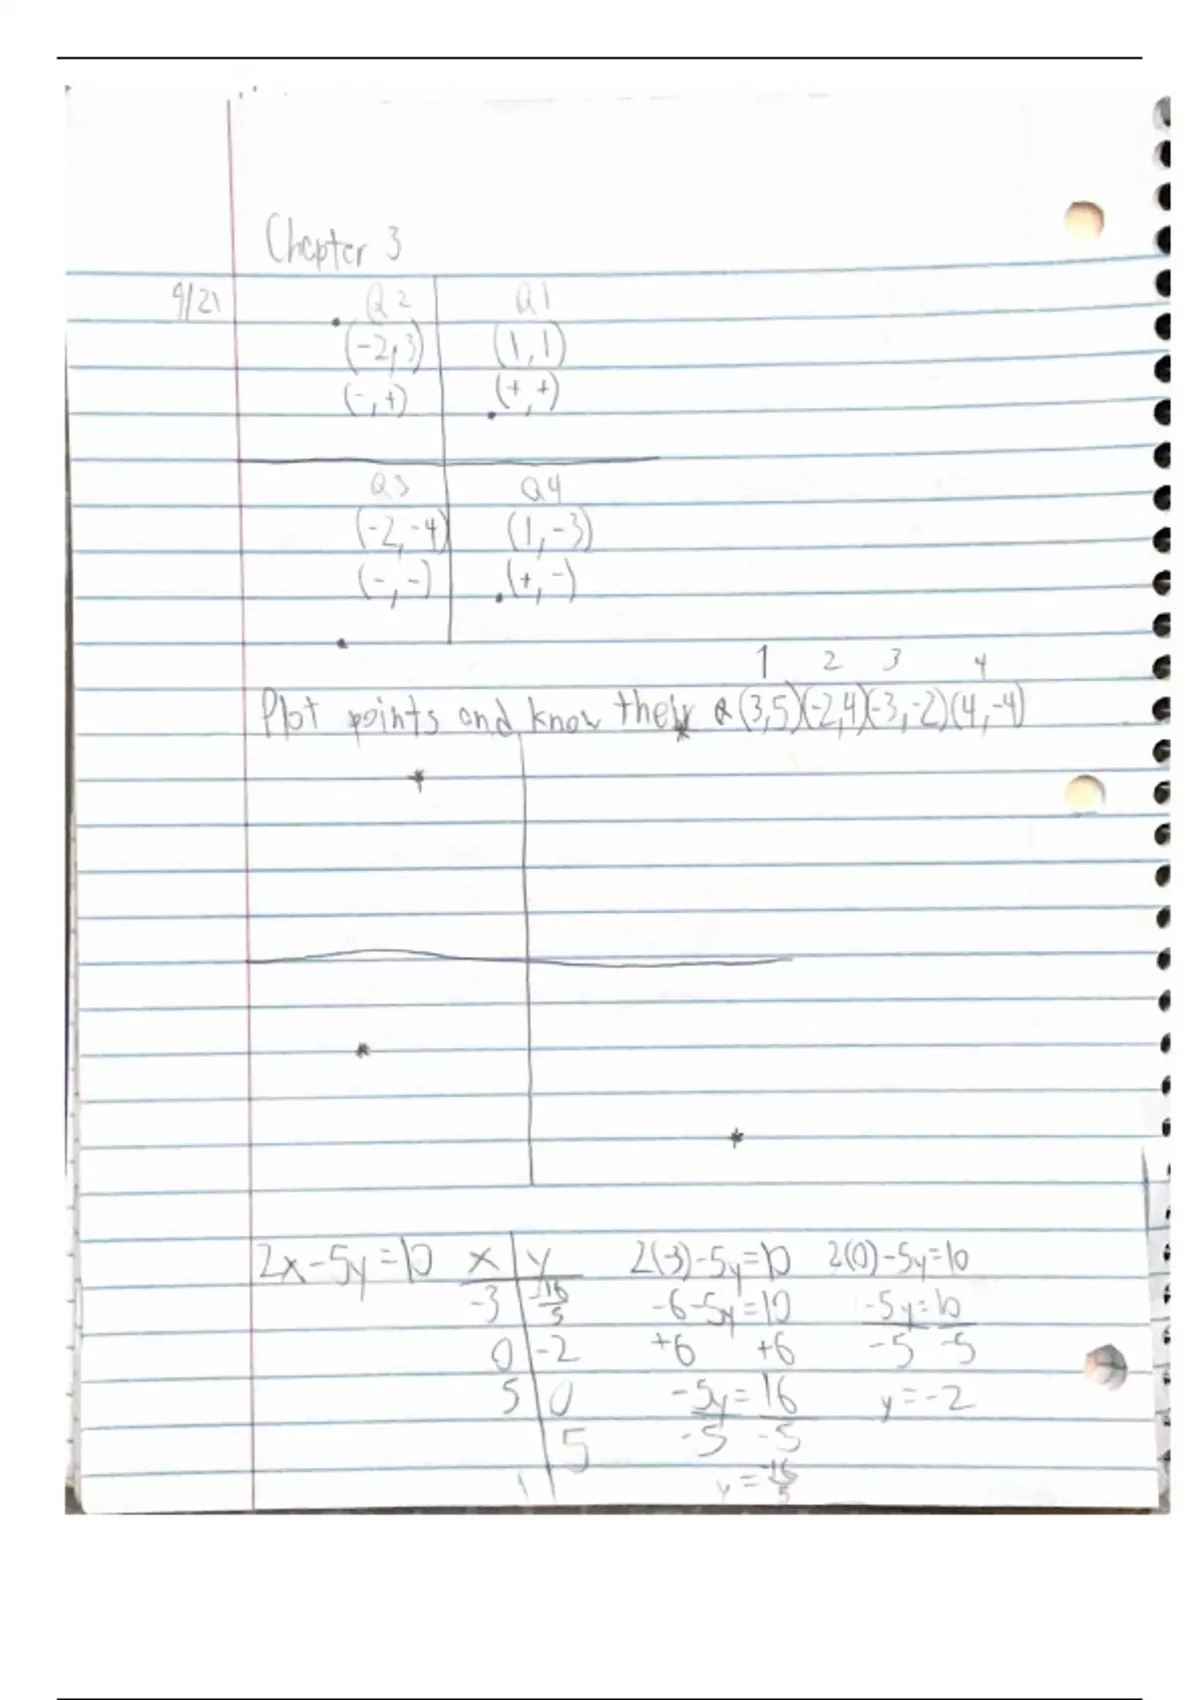 Chapter 3
9/21
Q2 Q1
(-2,3) (1,1)
(-,+) (+,+)
Q3 Q4
(-2,-4) (1,-3)
(-,-) (+,-)
1 2 3 4
Plot points and know their Q (3,5)(-2,4)(-3,-2)(4,-4)
2x-5y=10 x y 2(-3)-5y=10 2(0)-5y=10
-3 -16/5 -6-5y=10 -5y=10
0 -2 +6 +6 -5 -5
5 0 -5y=16 y=-2
5 -5 -5
y=-16/5